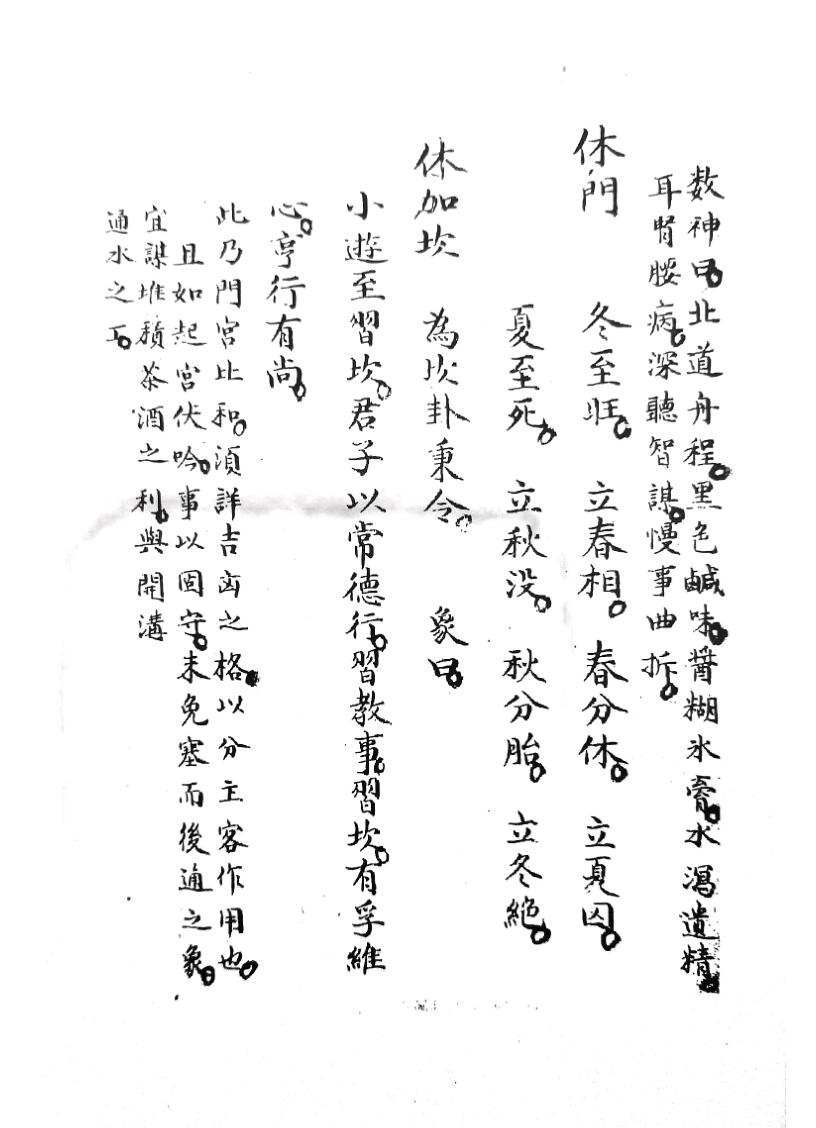 数神曰。北道舟程。黑色鹹味。醬糊氷膏。水瀉遺精。
耳腎腰病。深聽智謀。慢事曲折。
休門 冬至旺。 立春相。 春分休。 立夏囚。
夏至死。 立秋没。 秋分胎。 立冬絶。
休加坎 為坎卦秉令。 象曰。
小遊至習坎。君子以常德行。習教事。習坎。有孚維
心。亨行有尚。
此乃門宮比和。須詳吉凶之格。以分主客作用也。
且如起宮伏吟。事以固守。未免塞而後通之象。
宜謀堆積茶酒之利。與開溝
通水之工。